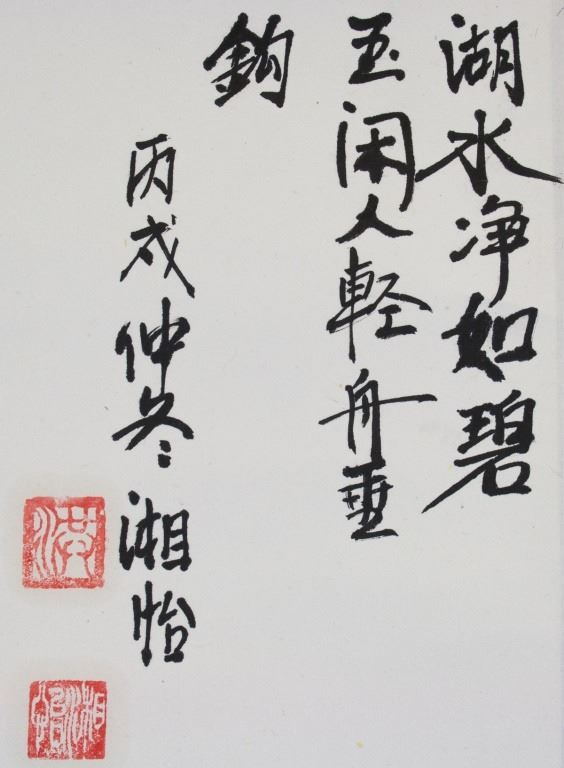 湖水净如碧
玉闲人輕舟垂
鈎
丙戌仲冬湘怡
洪
湘怡